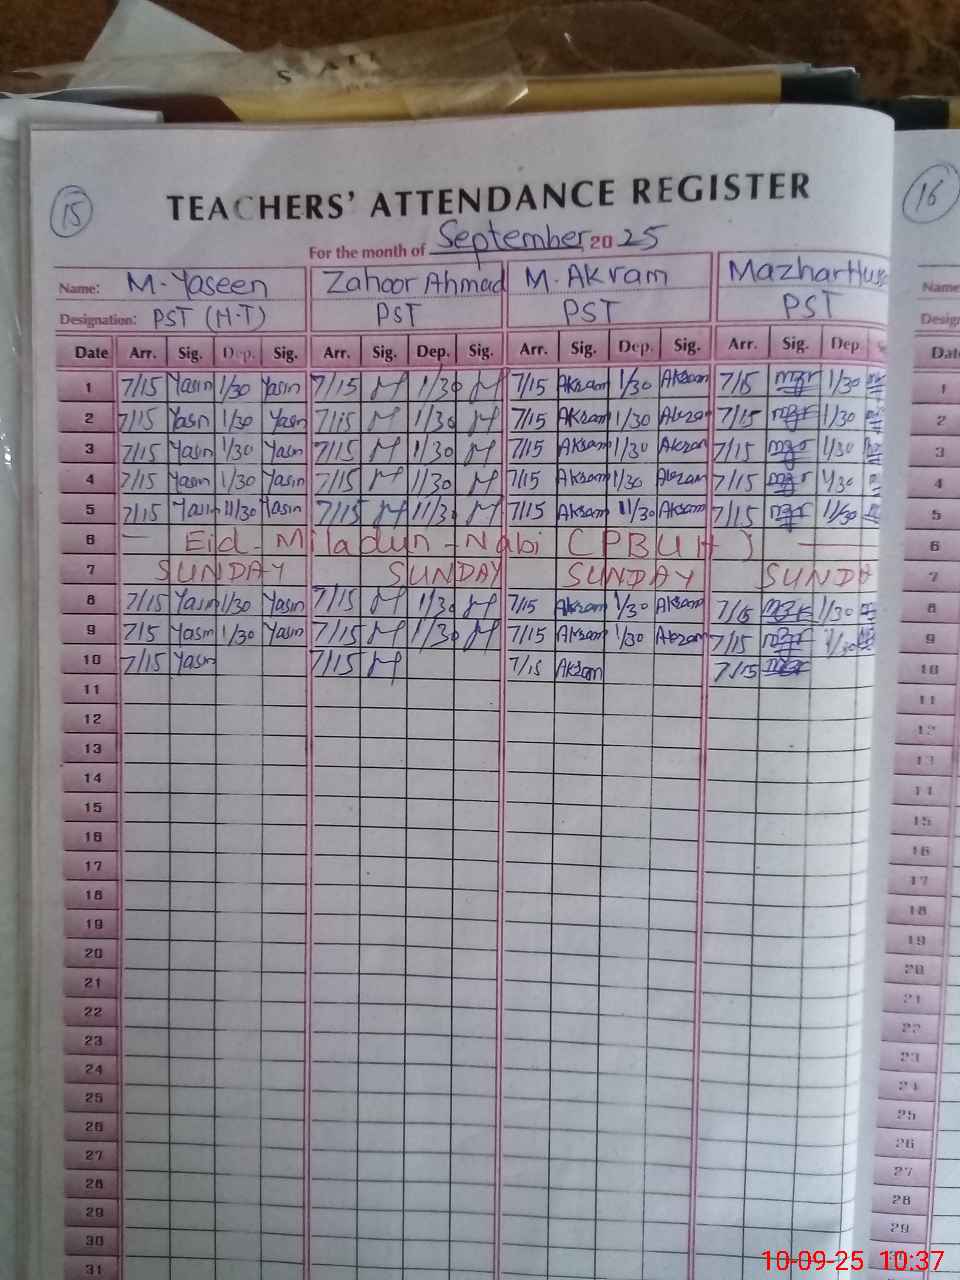 15
TEACHERS' ATTENDANCE REGISTER
16
For the month of September 2025
Name: M. Yaseen Zahoor Ahmad M. Akram Mazhar
Name
Designation: PST (H.T) PST PST PST
Date Arr. Sig. Dep. Sig. Arr. Sig. Dep. Sig. Arr. Sig. Dep. Sig. Arr. Sig. Dep.
1 7/15 Yasin 1/30 Yasin 7/15 1/30 7/15 Akram 1/30 Akram 7/15 1/30 1
2 7/15 Yasin 1/30 Yasin 7/15 1/30 7/15 Akram 1/30 Akram 7/15 1/30 2
3 7/15 Yasin 1/30 Yasin 7/15 1/30 7/15 Akram 1/30 Akram 7/15 1/30 3
4 7/15 Yasin 1/30 Yasin 7/15 1/30 7/15 Akram 1/30 Akram 7/15 1/30 4
5 7/15 Yasin 11/30 Yasin 7/15 11/30 7/15 Akram 11/30 Akram 7/15 11/30 5
6 Eid-Miladun-Nabi (PBUH) 6
7 SUNDAY SUNDAY SUNDAY SUNDA 7
8 7/15 Yasin 1/30 Yasin 7/15 1/30 7/15 Akram 1/30 Akram 7/15 1/30 8
9 7/5 Yasin 1/30 Yasin 7/15 1/30 7/15 Akram 1/30 Akram 7/15 1/30 9
10 7/15 Yasin 7/15 7/15 Akram 7/15 10
11 11
12 12
13 13
14 14
15 15
16 16
17 17
18 18
19 19
20 20
21 21
22 22
23 23
24 24
25 25
26 26
27 27
28 28
29 29
30 30
31
10-09-25 10:37